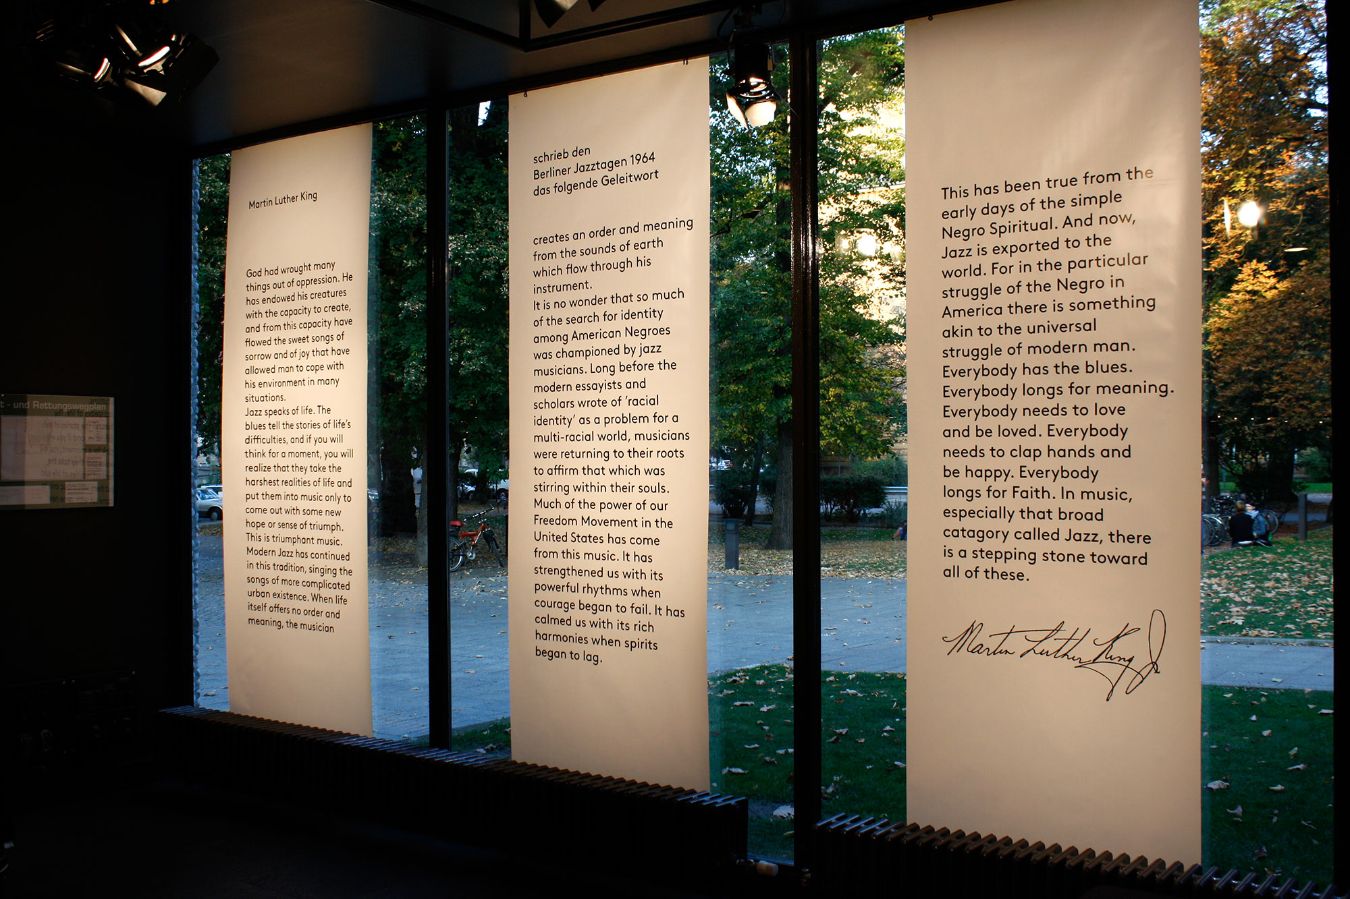 Martin Luther King
God had wrought many
things out of oppression. He
has endowed his creatures
with the capacity to create,
and from this capacity have
flowed the sweet songs of
sorrow and of joy that have
allowed man to cope with
his environment in many
situations.
Jazz speaks of life. The
blues tell the stories of life's
difficulties, and if you will
think for a moment, you will
realize that they take the
harshest realities of life and
put them into music only to
come out with some new
hope or sense of triumph.
This is triumphant music.
Modern Jazz has continued
in this tradition, singing the
songs of more complicated
urban existence. When life
itself offers no order and
meaning, the musician
schrieb den
Berliner Jazztagen 1964
das folgende Geleitwort
creates an order and meaning
from the sounds of earth
which flow through his
instrument.
It is no wonder that so much
of the search for identity
among American Negroes
was championed by jazz
musicians. Long before the
modern essayists and
scholars wrote of 'racial
identity' as a problem for a
multi-racial world, musicians
were returning to their roots
to affirm that which was
stirring within their souls.
Much of the power of our
Freedom Movement in the
United States has come
from this music. It has
strengthened us with its
powerful rhythms when
courage began to fail. It has
calmed us with its rich
harmonies when spirits
began to lag.
This has been true from the
early days of the simple
Negro Spiritual. And now,
Jazz is exported to the
world. For in the particular
struggle of the Negro in
America there is something
akin to the universal
struggle of modern man.
Everybody has the blues.
Everybody longs for meaning.
Everybody needs to love
and be loved. Everybody
needs to clap hands and
be happy. Everybody
longs for Faith. In music,
especially that broad
catagory called Jazz, there
is a stepping stone toward
all of these.
Martin Luther King Jr
und Rettungswegplan